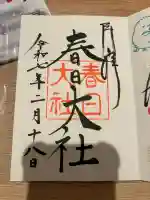 月詣
春日大社
春日
大社
令和七年二月十八日